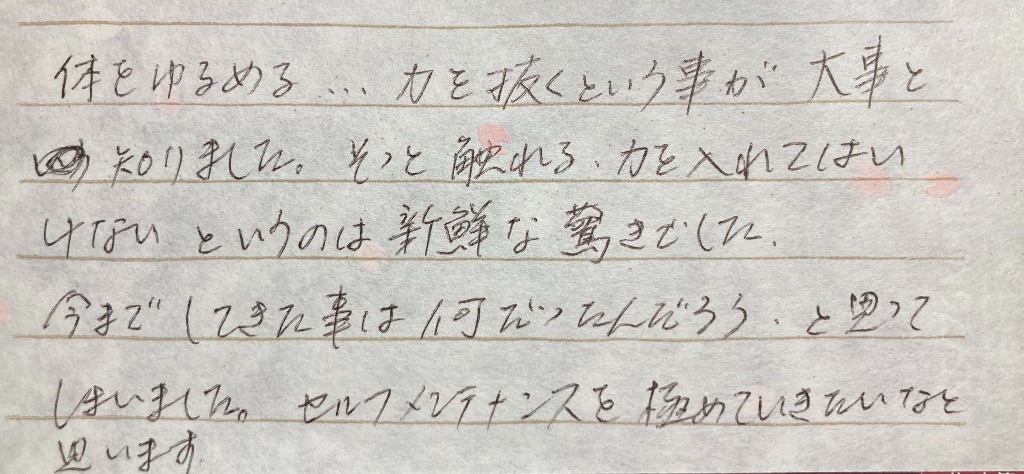 体をゆるめる… 力を抜くという事が 大事と
知りました。そっと触れる、力を入れてはい
けない というのは新鮮な驚きでした。
今までしてきた事は何だったんだろう、と思って
しまいました。セルフメンテナンスを極めていきたいなと
思います。